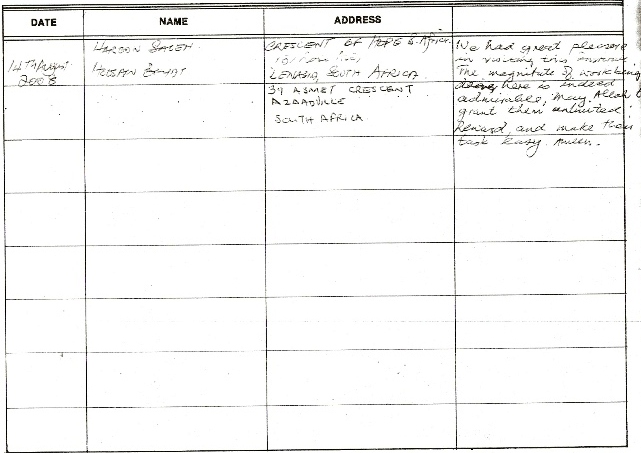 DATE
NAME
ADDRESS
14TH August 2008
HAROON SALEH
HUSSAIN BHYAT
CRESCENT OF HOPE S. Africa.
LENASIA, SOUTH AFRICA
37 ASMET CRESCENT
AZAADVILLE
SOUTH AFRICA
We had great pleasure
in visiting this
The magnitude of work being
done, here is indeed
admirable, may Allah
grant them unlimited
Reward, and make their
task easy. Ameen.